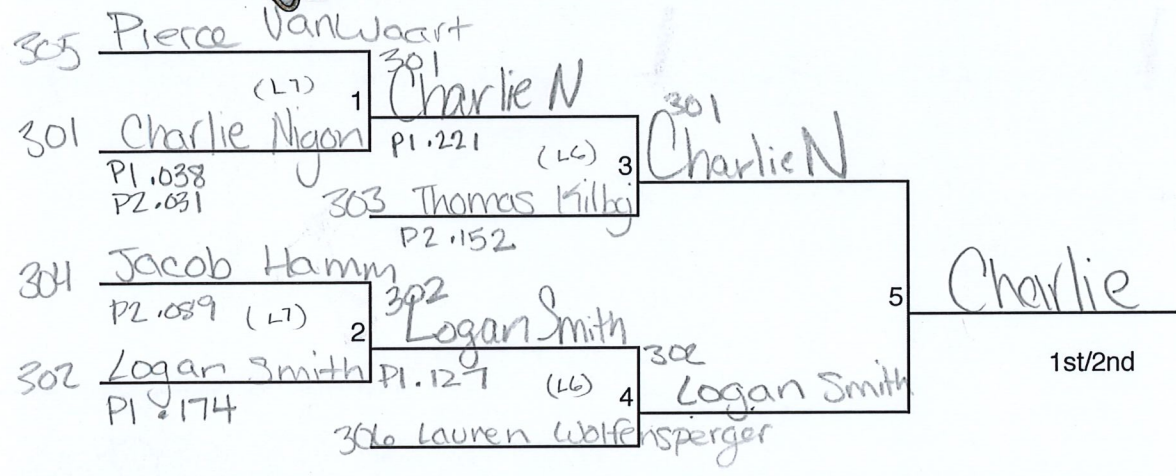 305 Pierce VanWaart
(L7) 1
301 Charlie Nigon
P1 .038
P2 .031
301
Charlie N
P1 .221
(L6) 3
303 Thomas Kilby
P2 .152
301
Charlie N
304 Jacob Hamm
P2 .089 (L7) 2
302 Logan Smith
P1 .174
302
Logan Smith
P1 .127
(L6) 4
306 Lauren Wolfensperger
302
Logan Smith
5
Charlie
1st/2nd